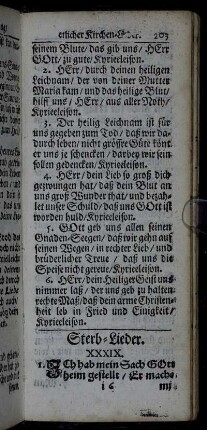 etlicher Kirchen-Ges. 203
seinem Blute/ das gib uns/ HErr
GOtt/ zu gute Kyrieleison.
2. HErr/ durch deinen heiligen
Leichnam/ der von deiner Mutter
Maria kam/ und das heilige Blut/
hilff uns/ HErr/ aus aller Noth/
Kyrieeleison.
3. Der heilig Leichnam ist für
uns gegeben zum Tod/ daß wir da-
durch leben/ nicht grösser Güte könt
er uns zu schencken/ darbey wir sein
sollen gedencken/ Kyrieleison.
4. HErr/ dein Lieb so groß dich
gezwungen hat/ daß dein Blut an
uns groß Wunder that/ und bezah-
let unser Schuld/ daß uns GOtt ist
worden huld/ Kyrieleison.
5. GOtt geb uns allen seinen
Gnaden-Seegen/ daß wir gehn auf
seinen Wegen/ in rechter Lieb/ und
brüderlicher Treue/ daß uns die
Speise nicht gereue/ Kyrieleison.
6. HErr/ dein Heiliger Geist uns
nimmer laß/ der uns geb zu halten
rechte Maß/ daß dein arme Christen-
heit leb in Fried und Einigkeit/
Kyrieeleison.
Sterb-Lieder.
XXXIX.
1. ICh hab mein Sach GOtt
heim gestellt/ Er mache
i 6